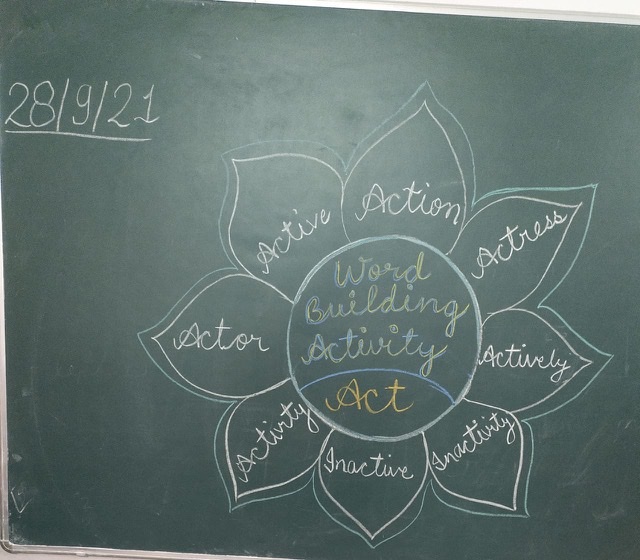 28/9/21
Word
Building
Activity
Act
Action
Actress
Actively
Inactivity
Inactive
Activity
Actor
Active